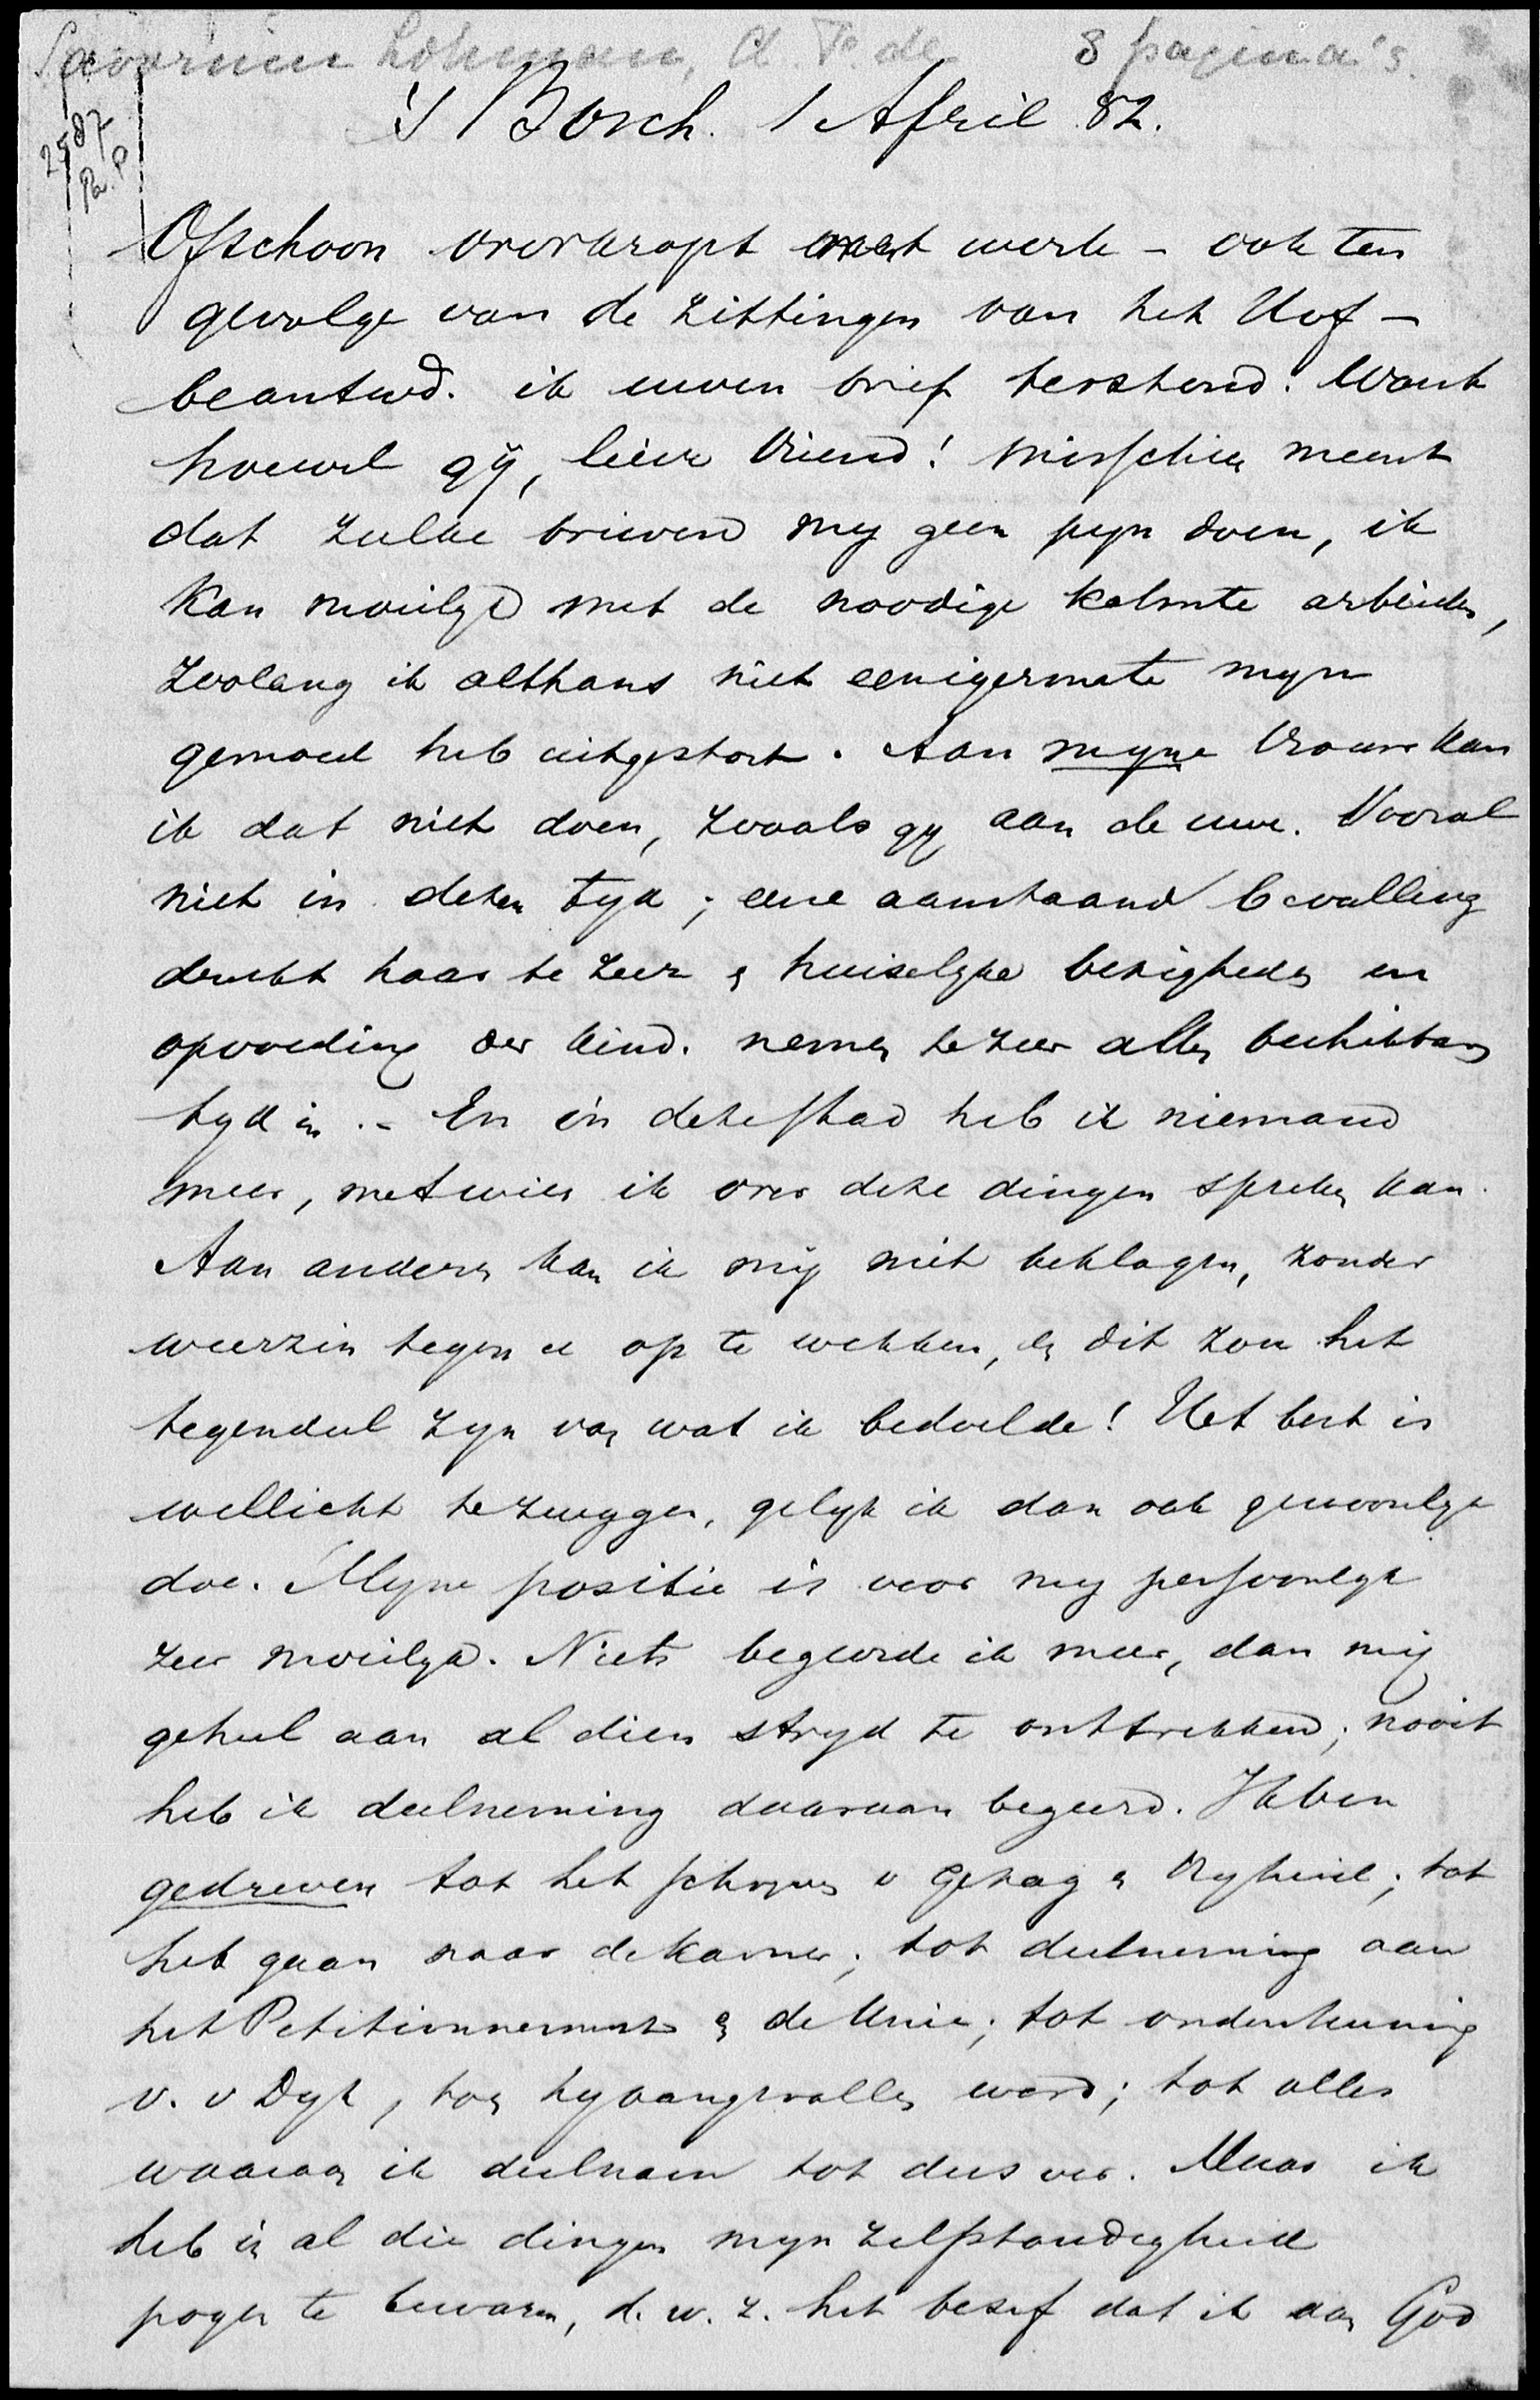 Savornin Lohman, A F de 8 pagina's.
2587
Pa. P
's Bosch. 1 April 82.
Ofschoon overkropt met werk - ook ten
gevolge van de zittingen van het Hof -
beantwd. ik uwen brief terstond. Want
hoewel gij, lieve Vriend! misschien meent
dat zulke brieven my geen pyn doen, ik
kan moeilyk met de noodige kalmte arbeiden,
zoolang ik althans niet eenigermate myn
gemoed heb uitgestort. Aan myne Vrouw kan
ik dat niet doen, zooals gy aan de uwe. Vooral
niet in dezen tyd; eene aanstaand bevalling
drukt haar te zeer & huiselyke bezigheden en
opvoeding der kind. nemen te zeer alle beschikbare
tyd in. - En in deze stad heb ik niemand
meer, met wien ik over deze dingen spreken kan.
Aan anderen kan ik mij niet beklagen, zonder
weerzin tegen u op te wekken, en dit zou het
tegendeel zyn van wat ik bedoelde! Het best is
wellicht te zwygen, gelyk ik dan ook gewoonlyk
doe. Myne positie is voor my persoonlyk
zeer moeilyk. Niets begeerde ik meer, dan mij
geheel aan al dien stryd te onttrekken; nooit
heb ik deelneming daaraan begeerd. Ik ben
gedreven tot het schryven v Gezag & Vryheid; tot
het gaan naar de Kamer; tot deelneming aan
het Petitionnement & de Unie; tot ondersteuning
v. v Dyk, toen hy aangevallen werd; tot alles
waaraan ik deelnam tot dusver. Maar ik
heb in al die dingen myn zelfstandigheid
pogen te bewaren, d. w. z. het besef dat ik aan God